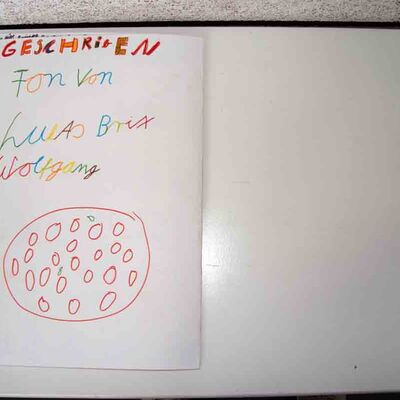 GESCHRIEEN
Fon Von
LUKAS Brix
Wolfgang